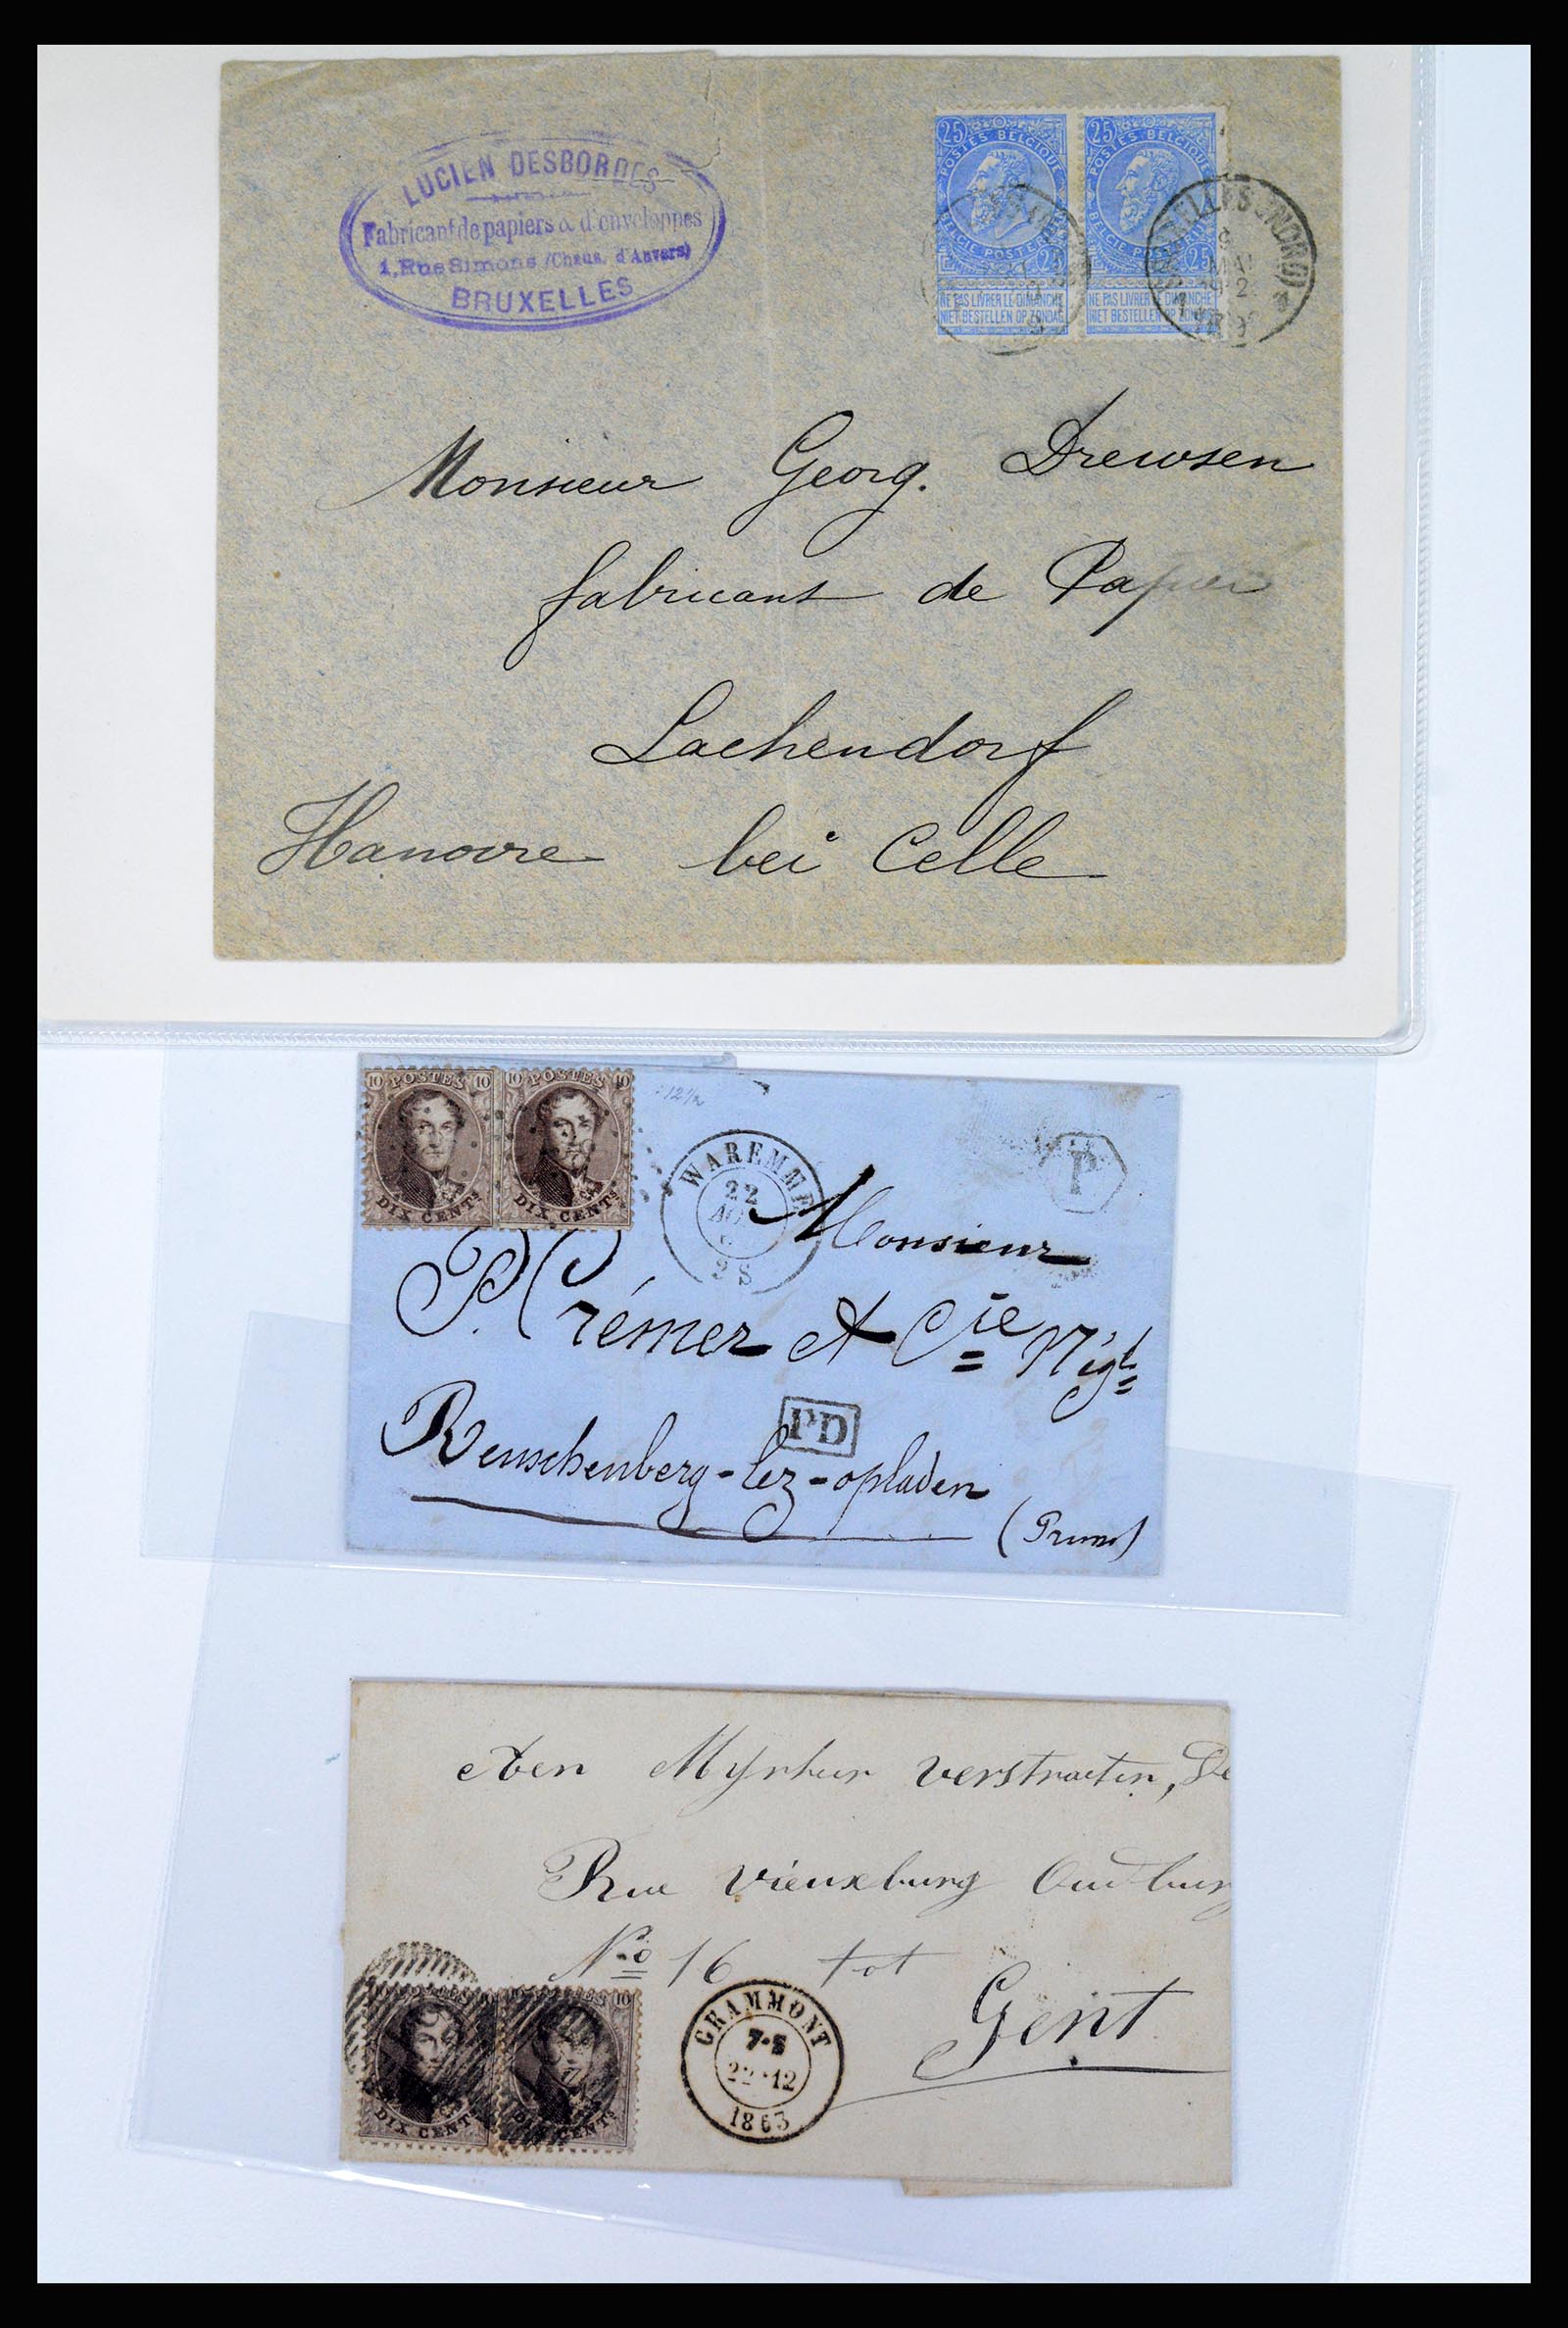 LUCIEN DESBORDES
Fabricant de papiers & d'enveloppes
1, Rue Simons (Chaus. d'Anvers)
BRUXELLES
25 25
POSTES BELGIQUE POSTES BELGIQUE
BELGIE POSTERIJEN BELGIE POSTERIJEN
25 25
NE PAS LIVRER LE DIMANCHE NE PAS LIVRER LE DIMANCHE
NIET BESTELLEN OP ZONDAG NIET BESTELLEN OP ZONDAG
(NORD)
MAI
Monsieur Georg. Drewsen
fabricant de Papier
Lachendorf
Hanovre bei Celle
10 POSTES 10 10 POSTES 10
DIX CENTS DIX CENTS
12½
WAREMME
22
P
Monsieur
P. Crémer et Cie Nigts
PD
Reuschenberg-lez-opladen
Aen Mynheer verstraeten, De
Rue Vieuxburg Oudburg
No 16 tot
Gent
10
DIX CENTS DIX CENTS
GRAMMONT
7-S
22·12
1863